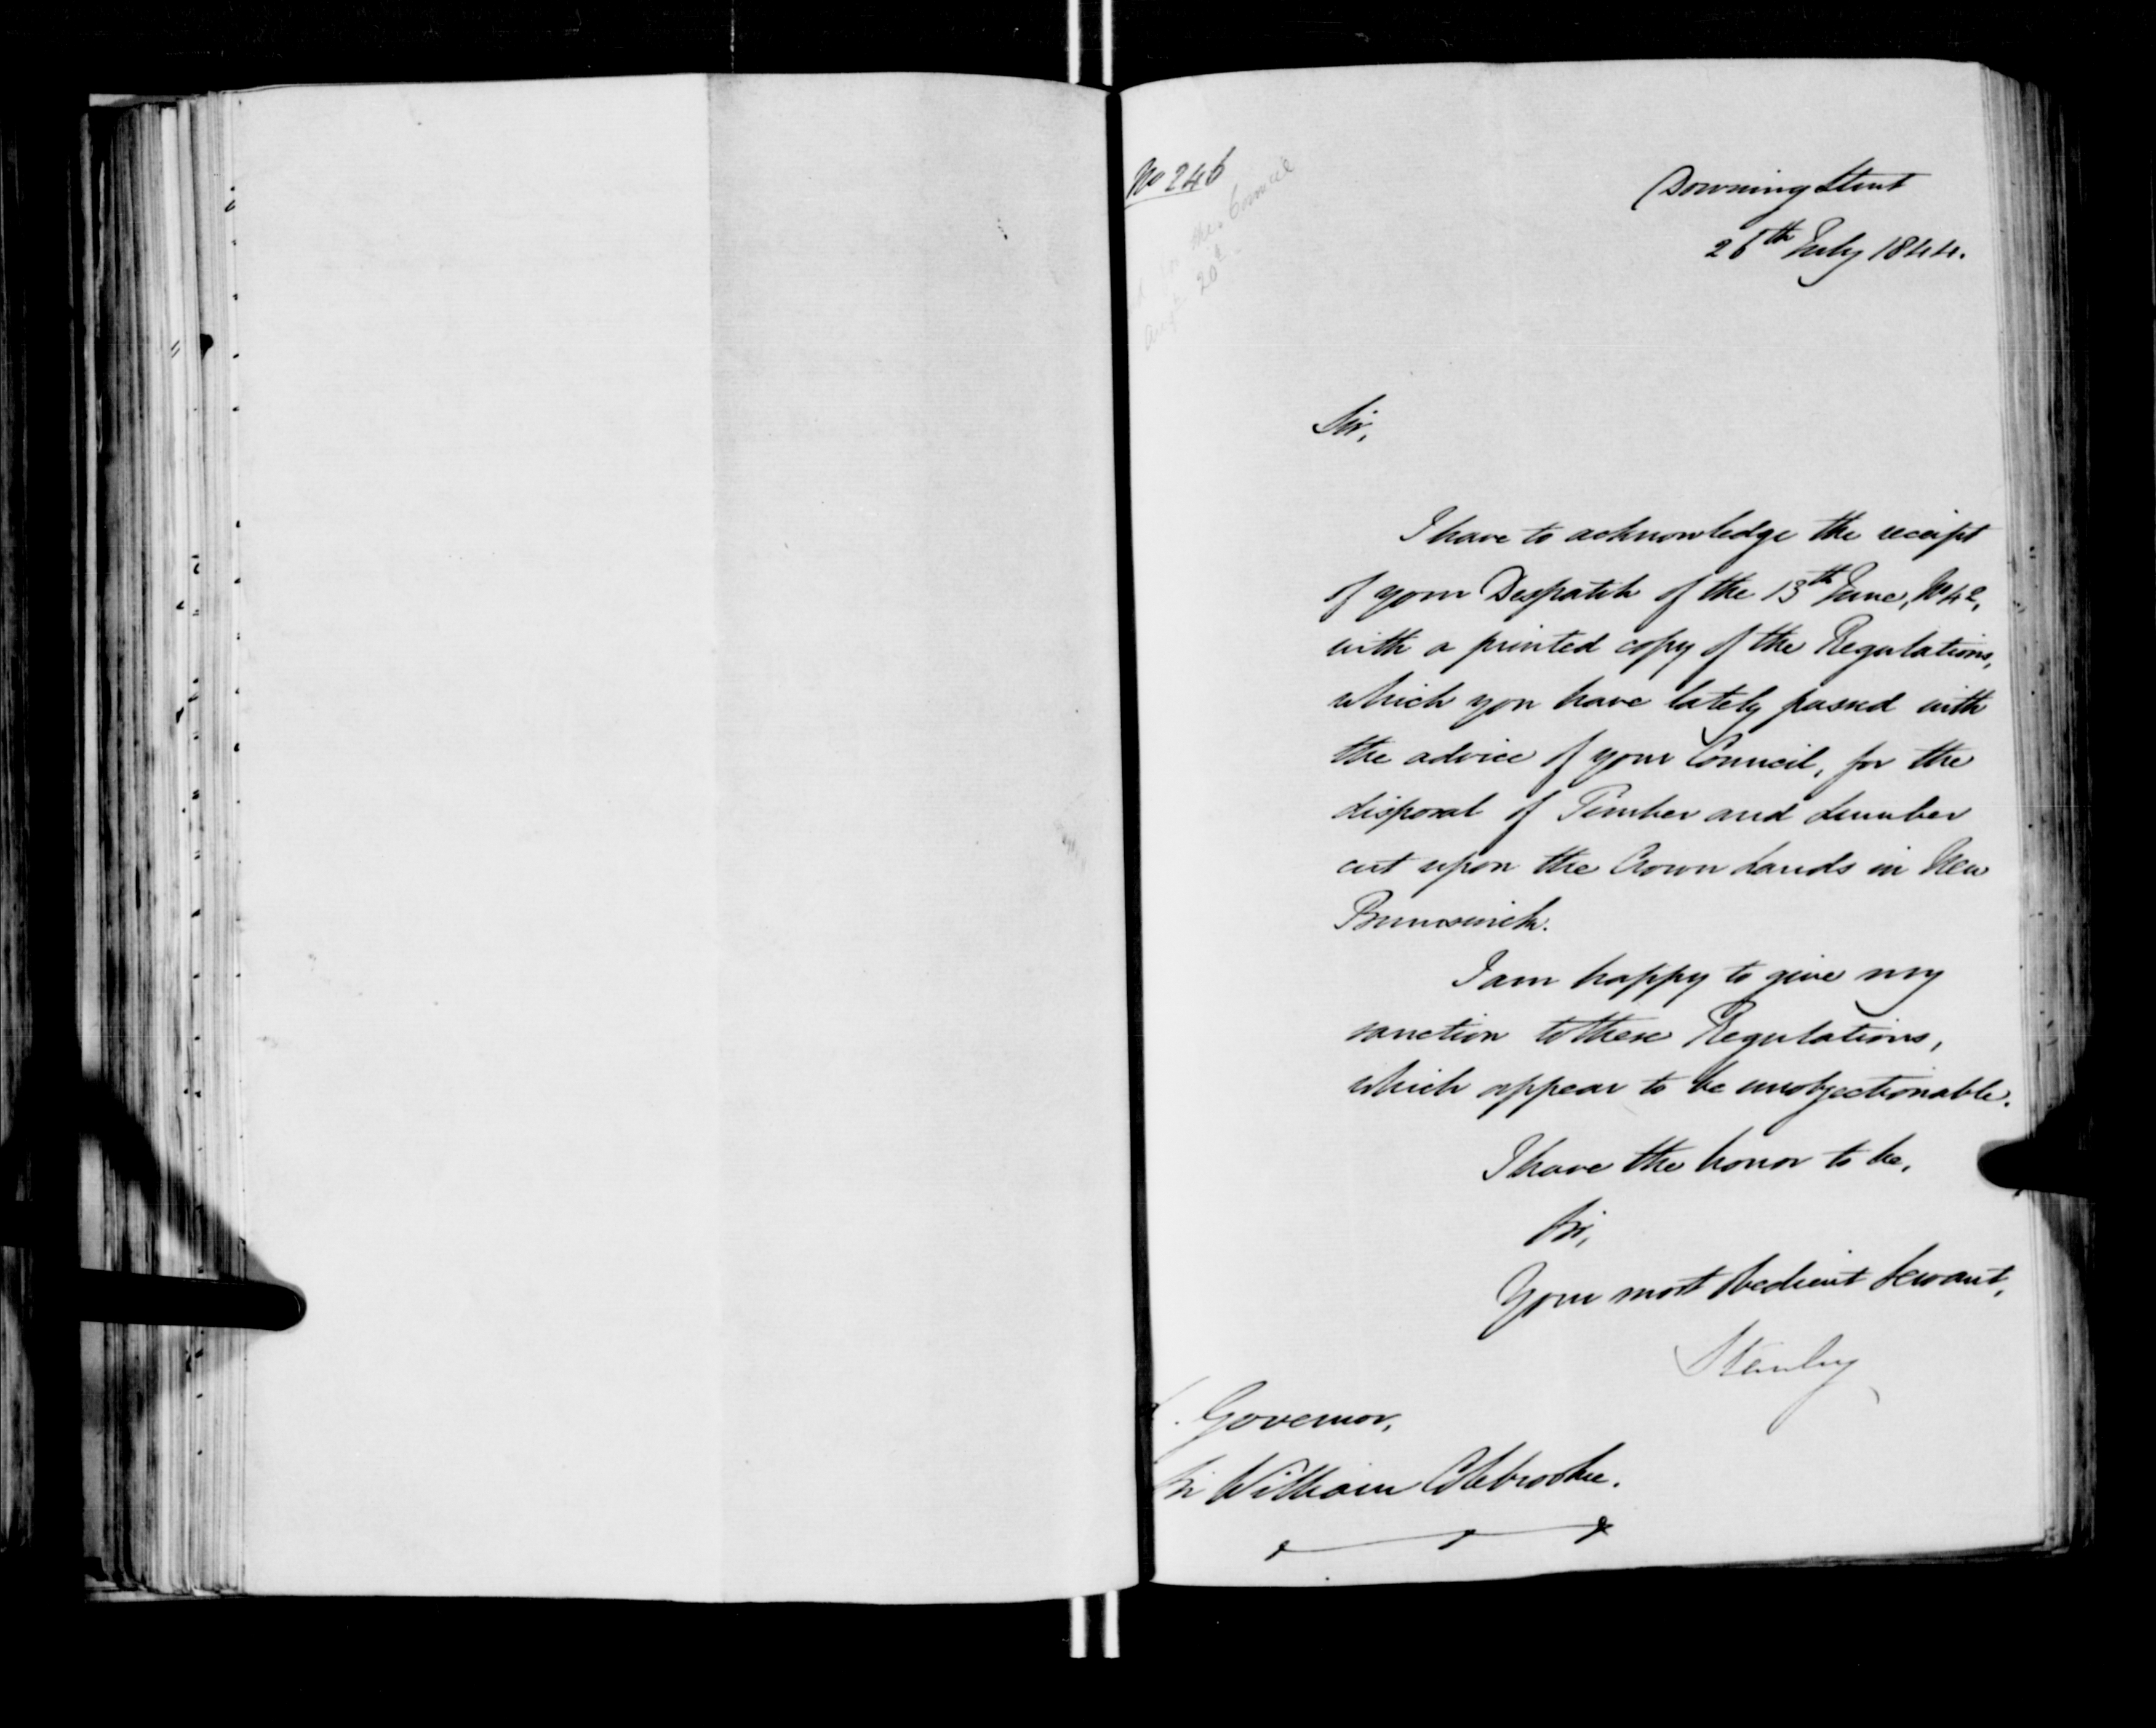 No 246
in the Council
Augt 20th
Downing Street
26th July 1844.
Sir,
I have to acknowledge the receipt
of your Despatch of the 13th June, No 42,
with a printed copy of the Regulations,
which you have lately passed with
the advice of your Council, for the
disposal of Timber and Lumber
cut upon the Crown Lands in New
Brunswick.
I am happy to give my
sanction to these Regulations,
which appear to be unobjectionable.
I have the honor to be,
Sir,
Your most obedient Servant,
Stanley
Governor,
Sir William Colebrooke.